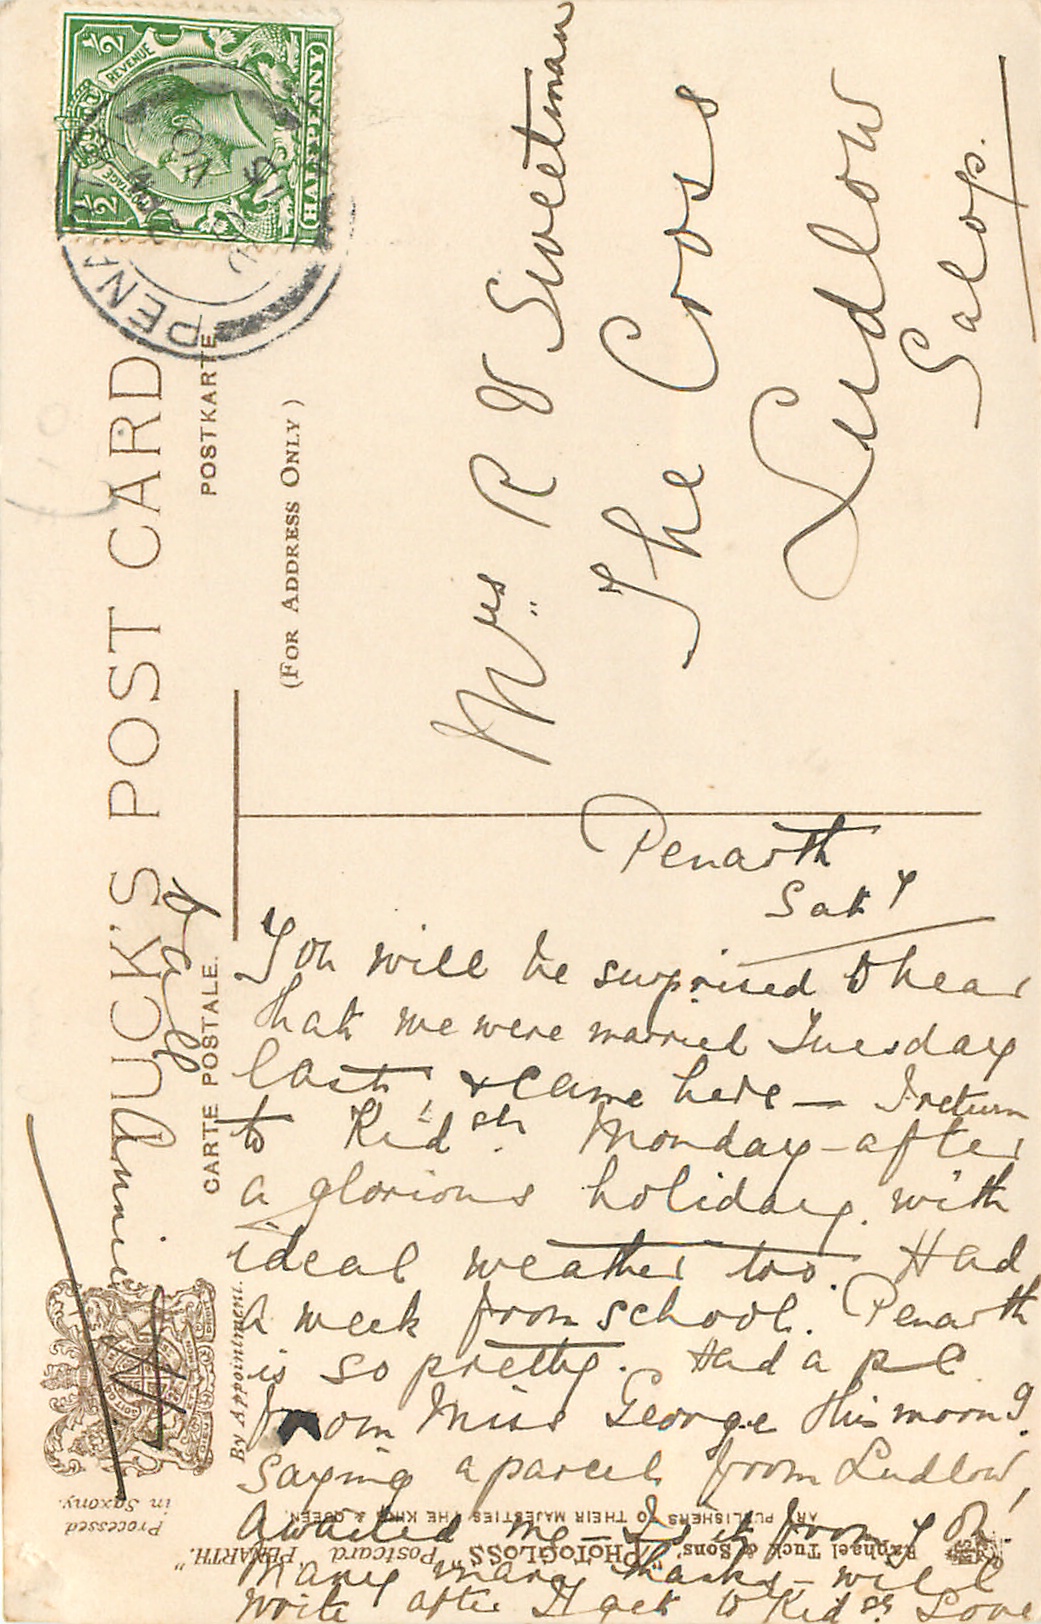 ½ REVENUE ½
POSTAGE
HALFPENNY
PENARTH
TUCK'S POST CARD
CARTE POSTALE.
POSTKARTE
(FOR ADDRESS ONLY)
Mrs R V Sweetman
The Coos
Ludlow
Salop.
Penarth
Saty
You will be surprised to hear
that we were married Tuesday
last, & came here — I return
to Kidstr. Monday - after
a glorious holiday. with
ideal weather too. Had
a week from school. Penarth
is so pretty. Had a p c
from Miss George this morng.
Saying a parcel from Ludlow,
awaited me — Is it from you?
Many many thanks - will
write after I get to Kidstr Love
Annie
By Appointment.
Processed
in Saxony.
Raphael Tuck & Sons' "PHOTOGLOSS" Postcard "PENARTH."
ART PUBLISHERS TO THEIR MAJESTIES THE KING & QUEEN.